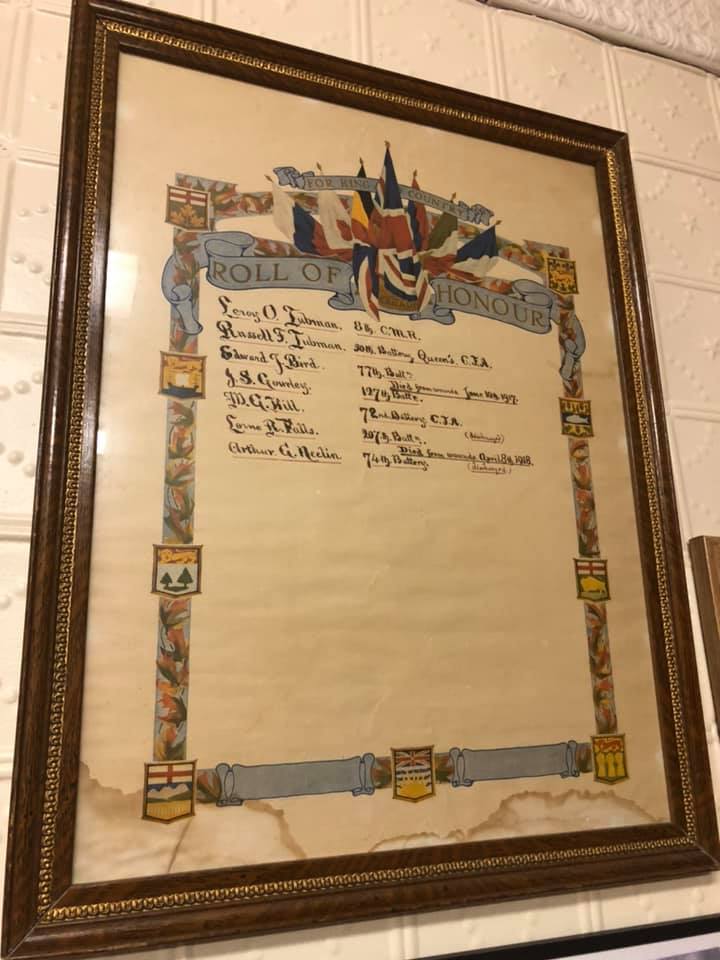 FOR KING COUNTRY
ROLL OF HONOUR
Leroy O. Tubman. 8th C.M.R.
Russell F. Tubman. Battery Queen's C.F.A.
Edward J. Bird. 77th Batt.
Died from wounds June 10th 1917.
J.S. Gourley. 127th Batt.
Hill. 72nd Battery C.F.A.
(discharged)
Lorne R. Falls. 207th Batt.
Died from wounds April 8th 1918.
Arthur G. Neelin 74th Battery.
(discharged)